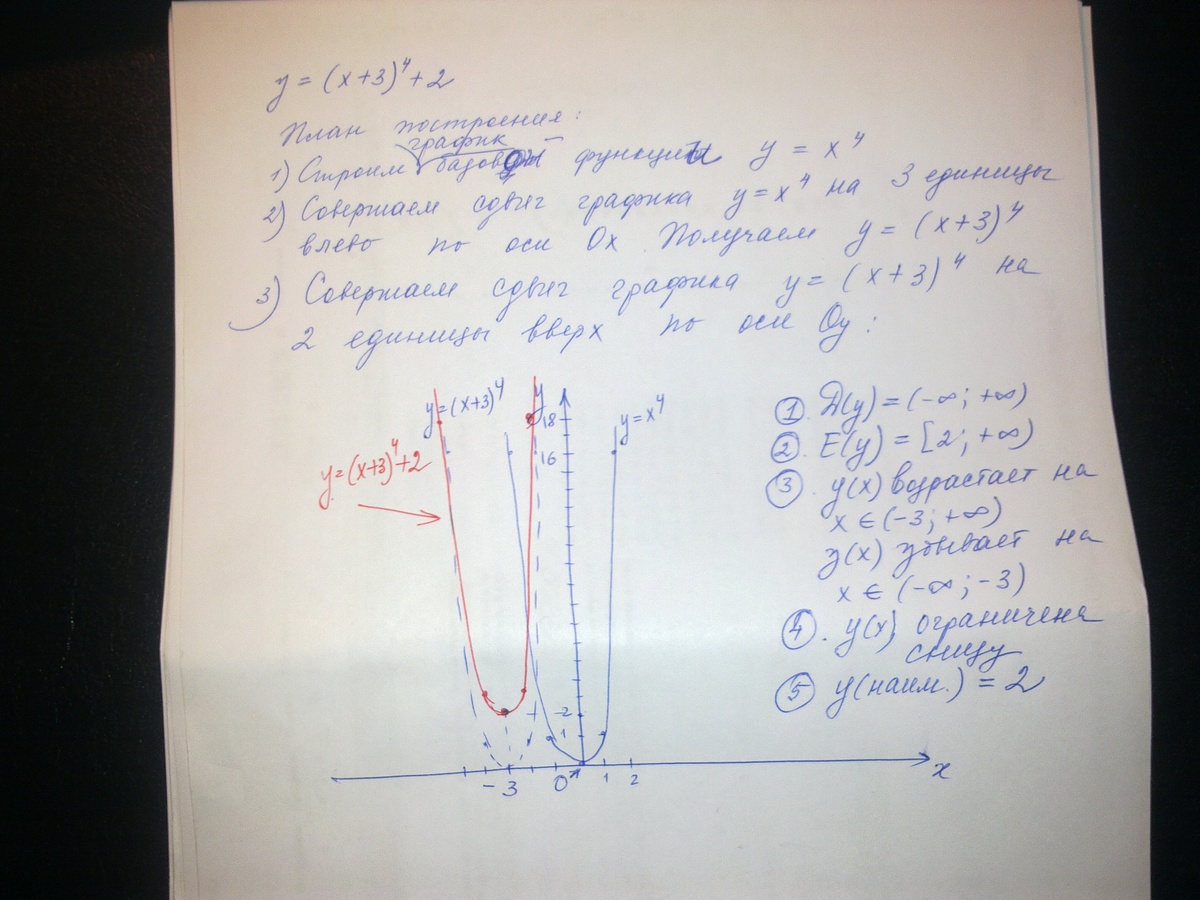 y = (x+3)⁴ + 2
План построения:
график
1) Строим базовой функции y = x⁴
2) Совершаем сдвиг графика y = x⁴ на 3 единицы
влево по оси Ox. Получаем y = (x+3)⁴
3) Совершаем сдвиг графика y = (x+3)⁴ на
2 единицы вверх по оси Oy:
y=(x+3)⁴
y
18
y=x⁴
16
y=(x+3)⁴+2
2
1
-3
0
1
2
x
① D(y) = (-∞; +∞)
② E(y) = [2; +∞)
③ y(x) возрастает на
x ∈ (-3; +∞)
y(x) убывает на
x ∈ (-∞; -3)
④ y(x) ограничена
снизу
⑤ y(наим.) = 2